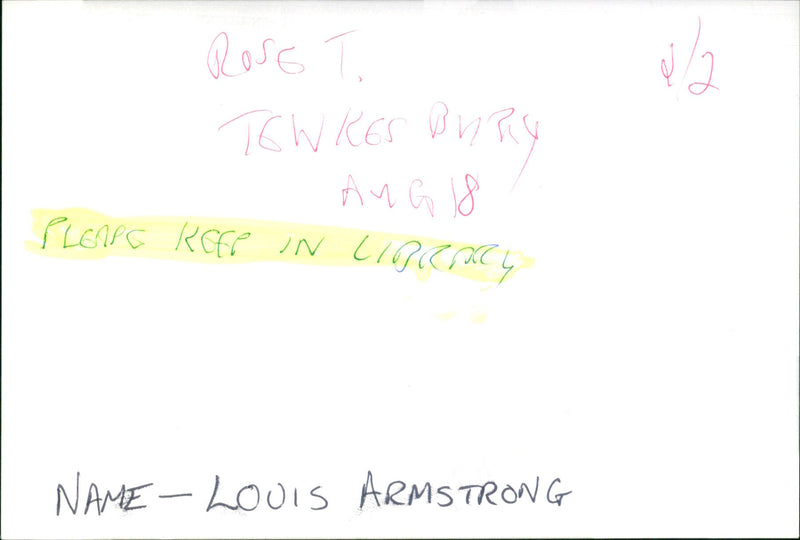 ROSE T.
2/2
TEWKESBURY
AUG 18
PLEASE KEEP IN LIBRARY
NAME – LOUIS ARMSTRONG